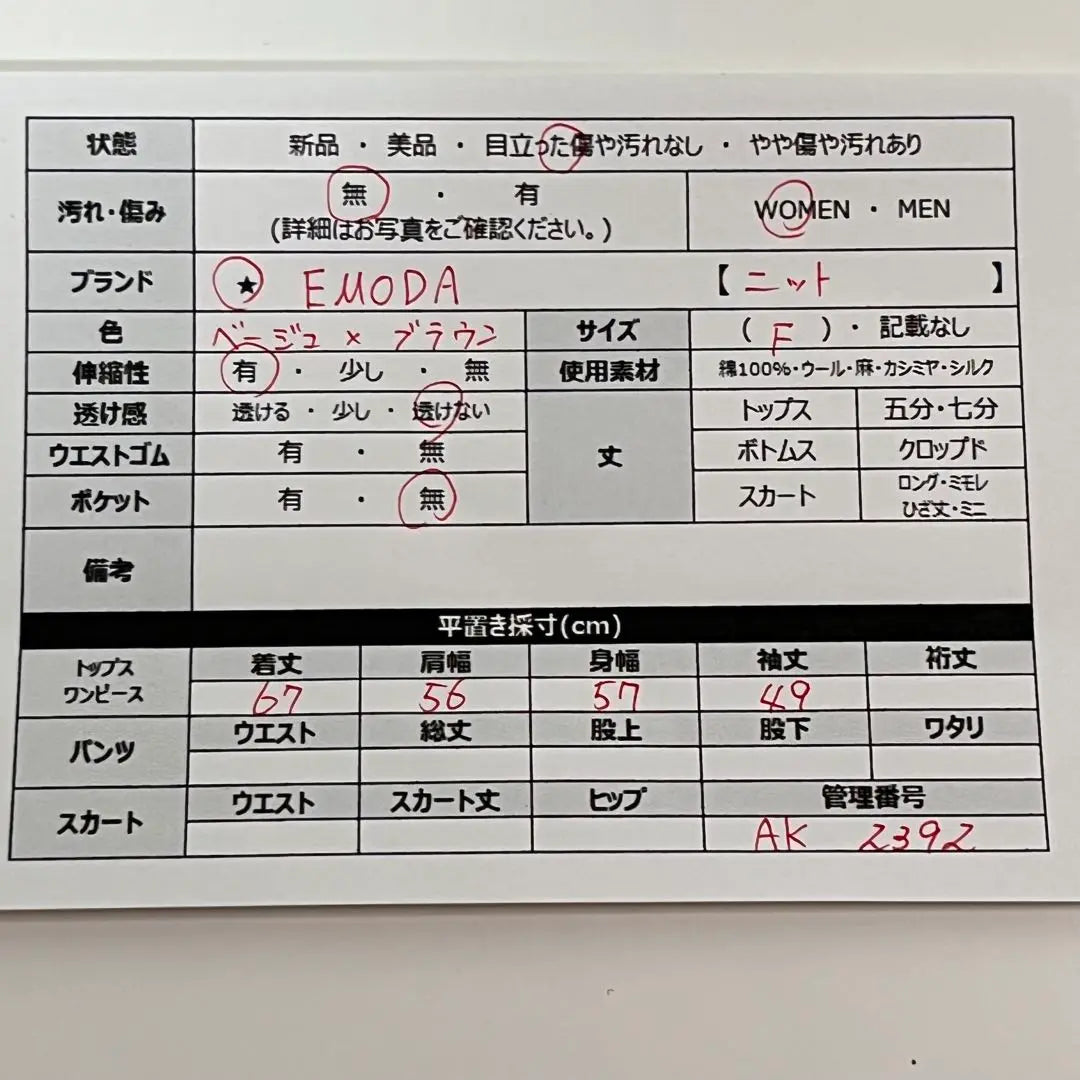 状態 新品 ・ 美品 ・ 目立った傷や汚れなし ・ やや傷や汚れあり
汚れ・傷み 無 ・ 有 WOMEN ・ MEN
(詳細はお写真をご確認ください。)
ブランド ★ EMODA 【ニット 】
色 ベージュ × ブラウン サイズ ( F )・ 記載なし
伸縮性 有 ・ 少し ・ 無 使用素材 綿100%・ウール・麻・カシミヤ・シルク
透け感 透ける ・ 少し ・ 透けない 丈 トップス 五分・七分
ウエストゴム 有 ・ 無 ボトムス クロップド
ポケット 有 ・ 無 スカート ロング・ミモレ
ひざ丈・ミニ
備考
平置き採寸(cm)
トップス ワンピース 着丈 肩幅 身幅 袖丈 裄丈
67 56 57 49
パンツ ウエスト 総丈 股上 股下 ワタリ
スカート ウエスト スカート丈 ヒップ 管理番号
AK 2392